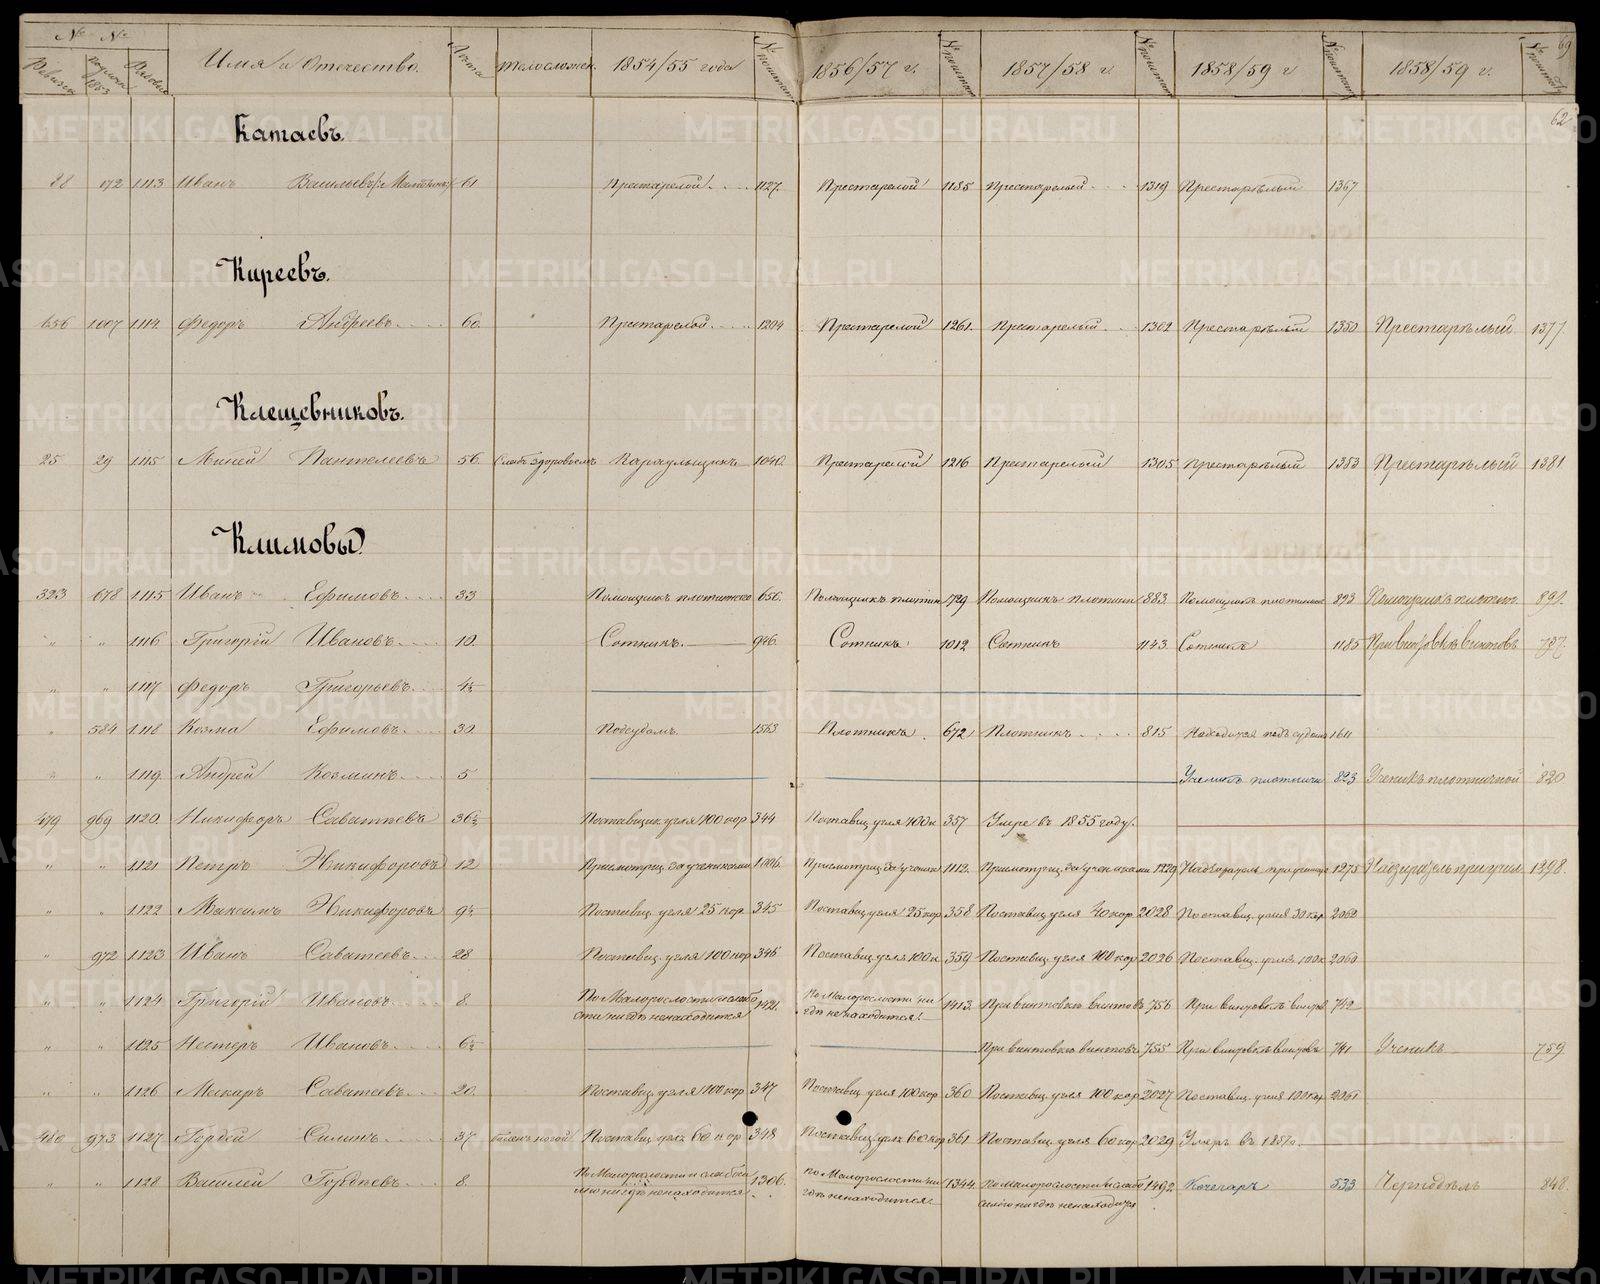 № № Имя и Отечество. Лета Телосложен. 1854/55 года 1856/57 г. 1857/58 г. 1858/59 г 1858/59 г. 69
62
Катаевъ.
88 172 1113 Иванъ Васильевъ 61 Престарелой 1127. Престарелой 1185 Престарелый 1319 Престарѣлый 1367
Киреевъ.
656 1007 1114. Федоръ Андреевъ 60. Престарелой 1204 Престарелой 1261. Престарелый 1362 Престарѣлый 1350 Престарѣлый 1377.
Клещевниковъ.
25 29 1115 Миней Пантелеевъ 56. Слабъ здоровьемъ Караульщикъ 1040. Престарелой 1216 Престарелый 1305 Престарѣлый 1353 Престарѣлый 1381
Климовы
323 678 1115 Иванъ Ефимовъ 33 Помощникъ плотинного 656. Помощникъ плотин 1729 Помощникъ плотинн 883 Помощникъ плотинном 893 Помощникъ плотин. 891.
" " 1116 Григорій Ивановъ 10. Сотникъ 946. Сотникъ 1012 Сотникъ 1143 Сотникъ 1185 При винтовкѣ винтовъ 787.
" " 1117 Федоръ Григорьевъ 4½
" 584 1118 Козма Ефимовъ 30. Подсудом. 1563 Плотникъ 672 Плотникъ 815 Находится подъ судомъ 1611
" " 1119. Андрей Козминъ 5 Ученикъ плотничн 823 Ученикъ плотничной 820
479 969 1120. Никифоръ Саватѣевъ 36½ Поставщик угля 100 кор 344 Поставщ угля 100 к 357 Умре въ 1855 году.
" " 1121 Петръ Никифоровъ 12 Присмотрщ. за учениками 1006. Присмотрщ. за ученик 1112. Присмотрщ. за учениками 1229 Надзиратель при 1275 Надзиратель при учил 1298.
" " 1122 Максимъ Никифоровъ 9½ Поставщ. угля 25 кор. 345 Поставщ угля 25 кор 358 Поставщ угля 40 кор 2028 Поставщ. угля 30 кор 2062
" 972 1123 Иванъ Саватеевъ 28 Поставщ. угля 100 кор 346 Поставщ угля 100 к. 359 Поставщ угля 100 кор 2026 Поставщ. угля 100 к 2060
" " 1124. Григорій Ивановъ 8. По Малорослости и слабо
сти нигдѣ ненаходится 1421. По Малорослости ни
гдѣ ненаходится 1413. При винтовкѣ винтовъ 756 При винтовкѣ винтов 742
" " 1125 Нестеръ Ивановъ 6½ При винтовкѣ винтовъ 755 При винтовкѣ винтовъ 741 Ученикъ 759
" " 1126 Макаръ Саватеевъ 20. Поставщ. угля 100 кор 347 Поставщ угля 100 кор 360 Поставщ угля 100 кор 2027 Поставщ. угля 100 кор 2061
480 973 1127. Гордей Силинъ 37. боленъ ногой Поставщ. угля 60 кор 348 Поставщ угля 60 кор 361 Поставщ. угля 60 кор 2029 Умеръ въ
" " 1128 Василей Гордѣевъ 8. По Малорослости и слабос
тию нигдѣ ненаходится 1306. по Малорослости ни
гдѣ ненаходится 1344 По малорослости и слабо
силію нигдѣ ненаходится 1492 Кочегаръ 533 Чернодѣлъ 848.
METRIKI.GASO-URAL.RU